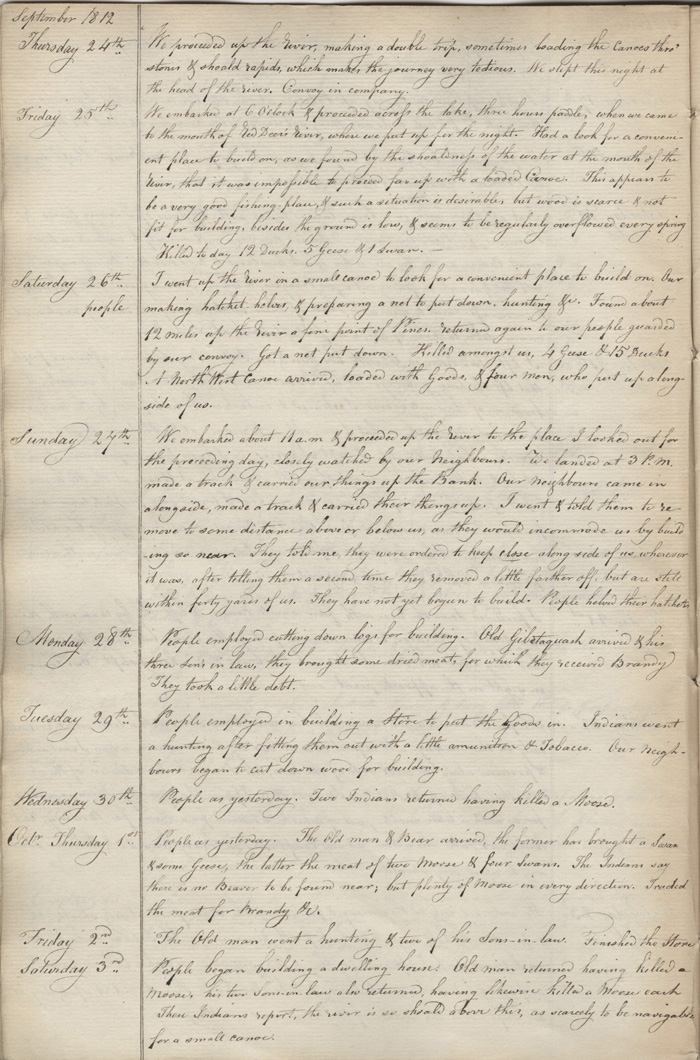 September 1812
Thursday 24th We proceeded up the River, making a double trip, sometimes loading the Canoes thro'
stones & shoald rapids, which makes the journey very tedious. We slept this night at
the head of the river. Convoy in company.
Friday 25th We embarked at 6 OClock & proceeded across the lake, three hours paddle, when we came
to the mouth of Red Deer's River, where we put up for the night. Had a look for a conveni-
ent place to build on, as we found by the shoaldness of the water at the mouth of the
River, that it was impossible to proceed far up with a loaded Canoe. This appears to
be a very good fishing place, & such a situation is desirable, but wood is scarce & not
fit for building, besides the ground is low, & seems to be regularly overflowed every spring
Killed to day 12 Ducks. 5 Geese & 1 Swan. —
Saturday 26th I went up the River in a small canoe to look for a convenient place to build on. Our
people making hatchet helves, & preparing a net to put down, hunting &c. Found about
12 miles up the River a fine point of Pines. returned again to our people guarded
by our convoy. Got a net put down. Killed amongst us, 4 Geese & 15 Ducks
A North West Canoe arrived, loaded with Goods, & four men, who put up along-
side of us.
Sunday 27th We embarked about 11 a.m & proceeded up the River to the place I looked out for
the preceeding day, closely watched by our Neighbours. We landed at 3 P.M.
made a track & carried our things up the Bank. Our Neighbours came in
alongside, made a track & carried their things up. I went & told them to re-
move to some distance above or below us, as they would incommode us by build
ing so near. They told me, they were ordered to keep close along side of us, wherever
it was, after telling them a second time they removed a little farther off, but are still
within forty yards of us. They have not yet begun to build. People helved their hatchets
Monday 28th People employed cutting down logs for building. Old arrived & his
three Sons in law, they brought some dried meat, for which they received Brandy
They took a little debt.
Tuesday 29th People employed in building a Store to put the Goods in. Indians went
a hunting after fitting them out with a little amunition & Tobacco. Our Neigh-
bours began to cut down wood for building.
Wednesday 30th People as yesterday. Two Indians returned having killed a Moose.
Octr Thursday 1st People as yesterday. The Old man & Bear arrived, the former has brought a Swan
& some Geese, the latter the meat of two Moose & four Swans. The Indians say
there is no Beaver to be found near; but plenty of Moose in every direction. Traded
the meat for Brandy &c.
Friday 2nd The Old man went a hunting & two of his Sons-in-law. Finished the Store
Saturday 3rd People began building a dwelling house. Old man returned having killed a
Moose, his two Sons-in-law also returned, having likewise killed a Moose each
These Indians report, the river is so shoald above this, as scarcely to be navigable
for a small canoe.